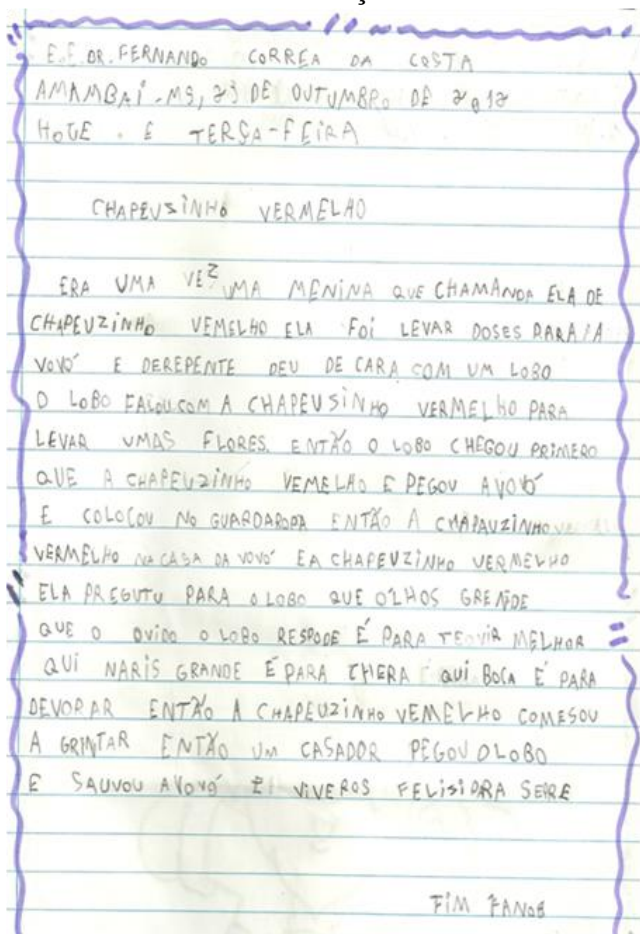 E.E DR. FERNANDO CORREA DA COSTA
AMAMBAI-MS, 23 DE OUTUMBRO DE 2012
HOGE E TERÇA-FEIRA
CHAPEUSINHO VERMELHO
ERA UMA VEZ UMA MENINA QUE CHAMANDA ELA DE
CHAPEUZINHO VEMELHO ELA FOI LEVAR DOSES PARA A
VOVÓ E DEREPENTE DEU DE CARA COM UM LOBO
O LOBO FALOU COM A CHAPEUSINHO VERMELHO PARA
LEVAR UMAS FLORES. ENTÃO O LOBO CHEGOU PRIMERO
QUE A CHAPEUZINHO VEMELHO E PEGOU A VOVÓ
E COLOCOU NO ENTÃO A CHAPAUZINHO
VERMELHO NA CASA DA VOVÓ E A CHAPEUZINHO VERMELHO
ELA PREGUTU PARA O LOBO QUE OLHOS GRENDE
QUE O OVIDO O LOBO RESPODE É PARA TEOVIR MELHOR
QUI NARIS GRANDE É PARA CHERA QUI BOCA É PARA
DEVORAR ENTÃO A CHAPEUZINHO VEMELHO COMESOU
A GRINTAR ENTÃO UM CASADOR PEGOU O LOBO
E SAUVOU A VOVÓ E VIVEROS SERRE
FIM